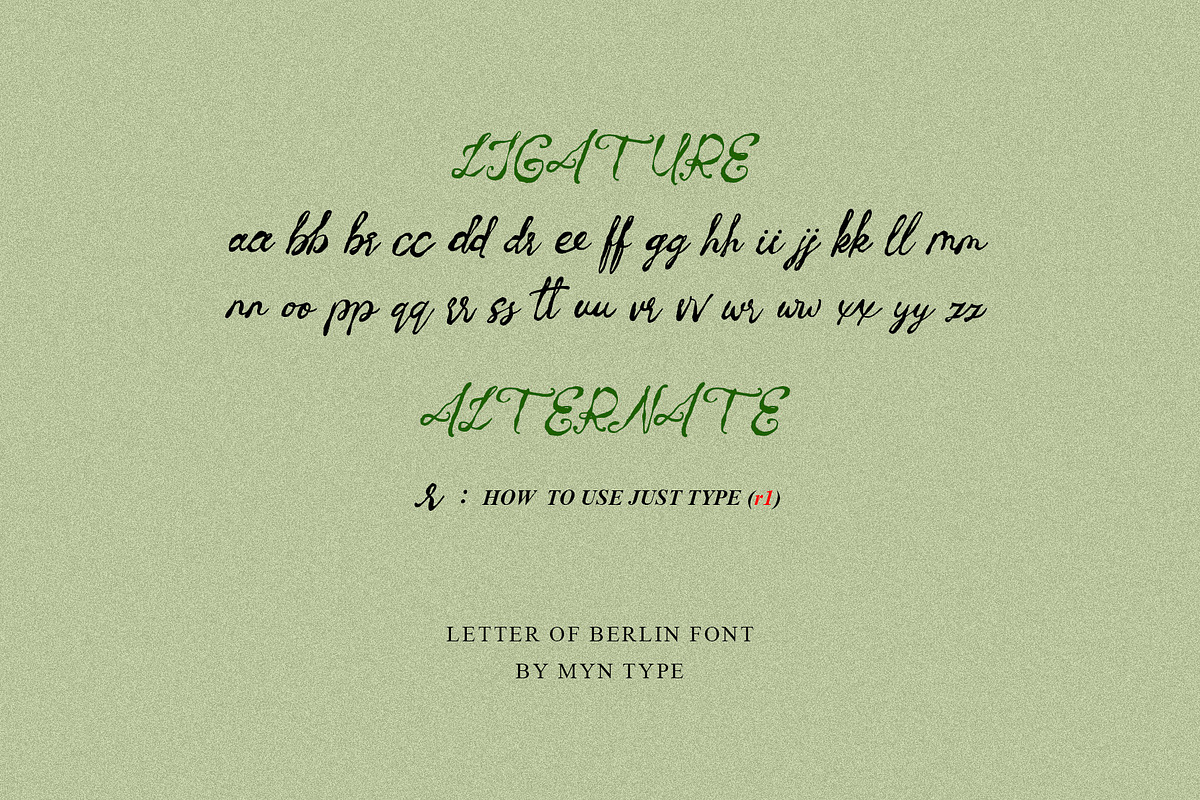 LIGATURE
aa bb br cc dd dr ee ff gg hh ii jj kk ll mm
nn oo pp qq rr ss tt uu vr vv wr ww xx yy zz
ALTERNATE
r : HOW TO USE JUST TYPE (r1)
LETTER OF BERLIN FONT
BY MYN TYPE